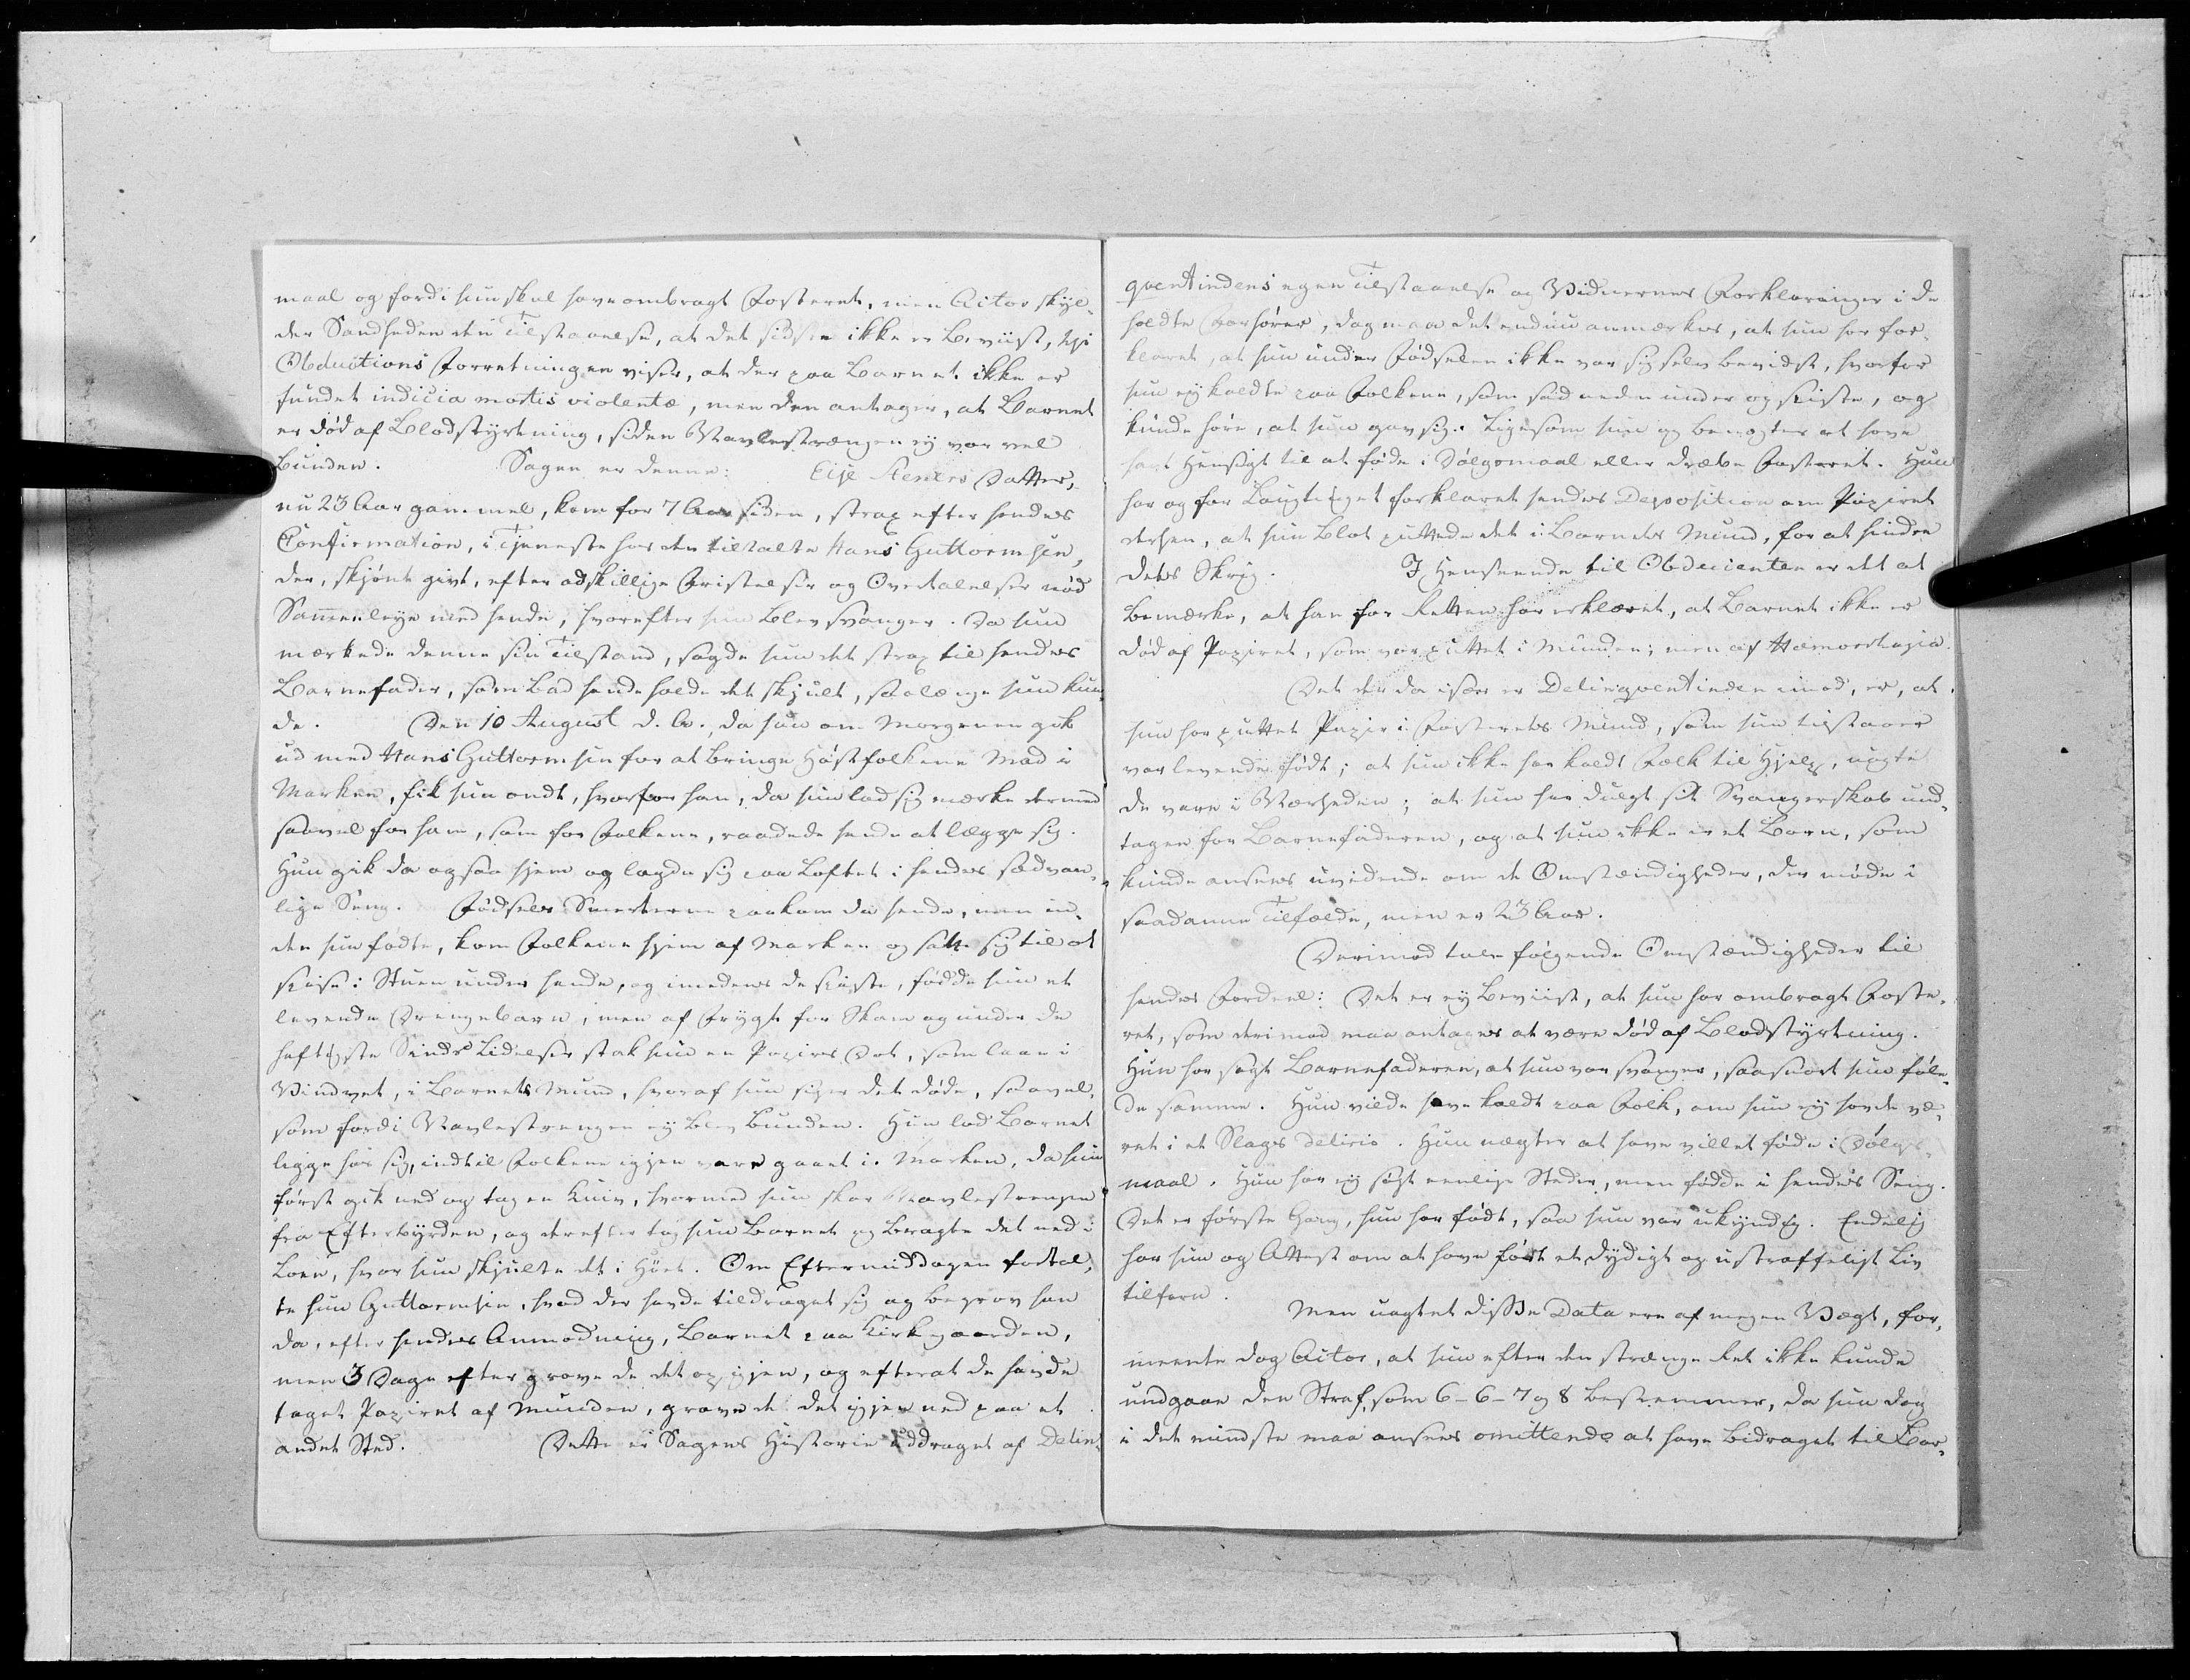 maal og fordi hun skal have ombragt Fosteret, men Actor skyl-
der Sandheden den Tilstaaelse, at det sidste ikke er beviist, thi
Obductions Forretningen viser, at der paa Barnet ikke er
fundet indicia mortis violentæ, men den antager, at Barnet
er død af Blodstyrtning, siden Navlestrængen ej var vel
bunden. Sagen er denne: Datter,
nu 23 Aar gammel, kom for 7 Aar siden, strax efter hendes
Confirmation, i Tjeneste hos den tiltalte Hans Guttormsen,
der, skjønt givt, efter adskillige Fristelser og Overtalelser nød
Samenleye med hende, hvorefter hun blev svanger. Da hun
mærkede denne sin Tilstand, sagde hun det strax til hendes
Barnefader, som bad hende holde det skjult, saalænge hun kun-
de. Den 10 August d. A., da hun om Morgenen gik
ud med Hans Guttormsen for at bringe Høstfolkene Mad i
Marken, fik hun ondt, hvorfor han, da hun lod sig mærke dermed
saavel for ham, som for Folkene, raadede hende at lægge sig.
Hun gik da ogsaa hjem og lagde sig paa Loftet i hendes sædvan-
lige Seng. Fødsels Smerterne paakom da hende, men in-
den hun fødte, kom Folkene hjem af Marken og satte sig til at
spise i Stuen under hende, og imedens de spiste, fødde hun et
levende Drengebarn, men af Frygt for Skam og under de
heftigste Sinds Lidelser stak hun en Papirs Dot, som laae i
Vindvet, i Barnets Mund, hvoraf hun siger det døde, saavel,
som fordi Navlestrengen ej blev bunden. Hun lod Barnet
ligge hos sig, indtil Folkene igjen vare gaaet i Marken, da hun
først gik ned og tog en Kniv, hvormed hun skar Navlestrengen
fra Efterbyrden, og derefter tog hun Barnet og bragte det ned i
Loen, hvor hun skjulte det i Høet. Om Eftermiddagen fortal-
te hun Guttormsen, hvad der havde tildraget sig og begrov han
da, efter hendes Anmodning, Barnet paa Kirkegaarden,
men 3 Dage efter grove de det op igjen, og efterat de havde
taget Papiret af Munden, grove de det igjen ned paa et
andet Sted. Dette er Sagens Historie uddraget af Delin-
qventindens egen Tilstaaelse og Vidnernes Forklaringer i de
holdte Forhører, dog maa det endnu anmærkes, at hun har for-
klaret, at hun under Fødselen ikke var sig selv bevidst, hvorfor
hun ej kaldte paa Folkene, som sad neden under og spiste, og
kunde høre, at hun gav sig. Ligesom hun og benegter at have
havt Hensigt til at føde i Dølgsmaal eller dræbe Fosteret. Hun
har og for Laugtinget forklaret hendes Deposition om Papiret
derhen, at hun blot puttede det i Barnets Mund, for at hindre
dets Skrig. I Henseende til Obducienten er det at
bemærke, at han for Retten har erklæret, at Barnet ikke er
død af Papiret, som var puttet i Munden; men af Hæmorrhagia.
Det der da især er Delinqventinden imod, er, at
hun har puttet Papir i Fosterets Mund, som hun tilstaaer
var levende født; at hun ikke har kaldt Folk til Hjelp, uagte
de vare i Nærheden; at hun har dulgt sit Svangerskab und-
tagen for Barnefaderen, og at hun ikke er et Barn, som
kunde ansees uvidende om de Omstændigheder, der møde i
saadanne Tilfælde, men er 23 Aar.
Derimod tale følgende Omstændigheder til
hendes Fordeel: Det er ej beviist, at hun har ombragt Foste-
ret, som derimod maa antages at være død af Blodstyrtning.
Hun har sagt Barnefaderen, at hun var svanger, saasnart hun føle-
de samme. Hun vilde have kaldt paa Folk, om hun ej havde væ-
ret i et Slags delirio. Hun nægter at have villet føde i Dølgs-
maal. Hun har ej søgt eenlige Steder, men fødde i hendes Seng.
Det er første Gang, hun har født, saa hun var ukyndig. Endelig
har hun og Attest om at have ført et dydigt og ustraffeligt Liv
tilforn.
Men uagtet disse Data ere af megen Vægt, for-
meente dog Actor, at hun efter den strænge Ret ikke kunde
undgaae den Straf, som 6-6-7 og 8 bestemmer, da hun dog
i det mindste maa ansees omittendo at have bidraget til Bar-